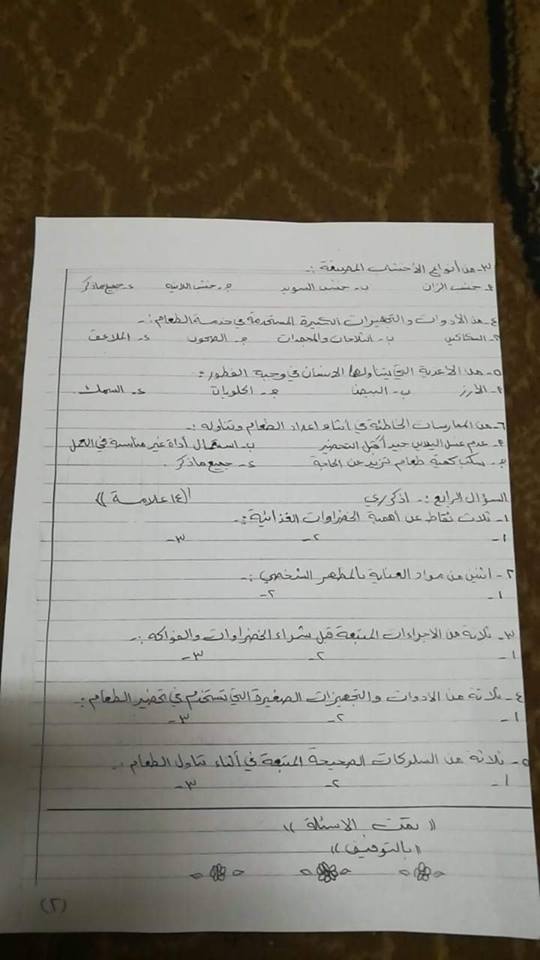 ٣- من أنواع الأخشاب المصنعة :-
٤- خشب الزان ب- خشب السويد ج- خشب اللاتيه د- جميع ماذكر
٤- من الأدوات والتجهيزات الكبيرة المستخدمة في خدمة الطعام :-
٢- السكاكين ب- الثلاجات والمجمدات ج- الصحون د- الملاعق
٥- من الأغذية التي يتناولها الإنسان في وجبة الفطور :
٤- الأرز ب- البيض ج- الحلويات د- السمك
٦- من الممارسات الخاطئة في أثناء اعداد الطعام وتناوله :-
٤- عدم غسل اليدين جيداً قبل التحضير ب- استعمال أداة غير مناسبة في العمل
ج- سكب كمية طعام تزيد عن الحاجة د- جميع ماذكر .
السؤال الرابع :- اذكري (١٤ علامة))
١- ثلاث نقاط عن أهمية الخضراوات الغذائية :-
١- ٢- ٣-
٢- اثنين من مواد العناية بالمظهر الشخصي :-
١- ٢-
٣- ثلاثة من الاجراءات المتبعة قبل شراء الخضراوات والفواكه :-
١- ٢- ٣-
٤- ثلاثة من الأدوات والتجهيزات الصغيرة التي تستخدم في تحضير الطعام :
١- ٢- ٣-
٥- ثلاثة من السلوكات الصحيحة المتبعة في أثناء تناول الطعام :-
١- ٢- ٣-
(( تمت الاسئلة ))
((بالتوفيق))
(٢)